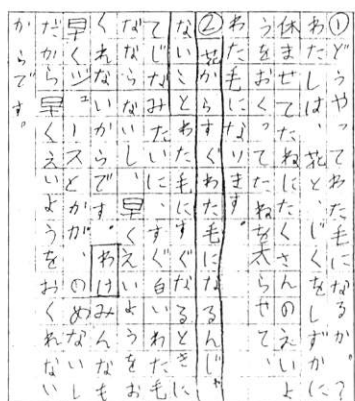 ①どうやってわた毛になるか。?
わたしは、花と、じくをしずかに
休ませてたねにたくさんのえいよ
うをおくってたねを太らせて、
わた毛になります。
②花からすぐわた毛になるんじゃ
ないことわた毛にすぐなるときに
てじなみたいに、すぐ白いわた毛
なならないし、早くえいようをお
くれないからです。わけみんなも
早くジュースとかが、のめないし
だから早くえいようをおくれない
からです。